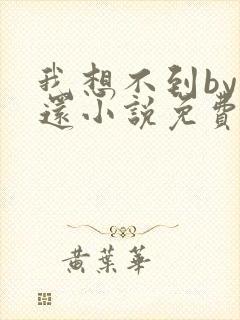 我想不到by
還小說免費
黃葉華